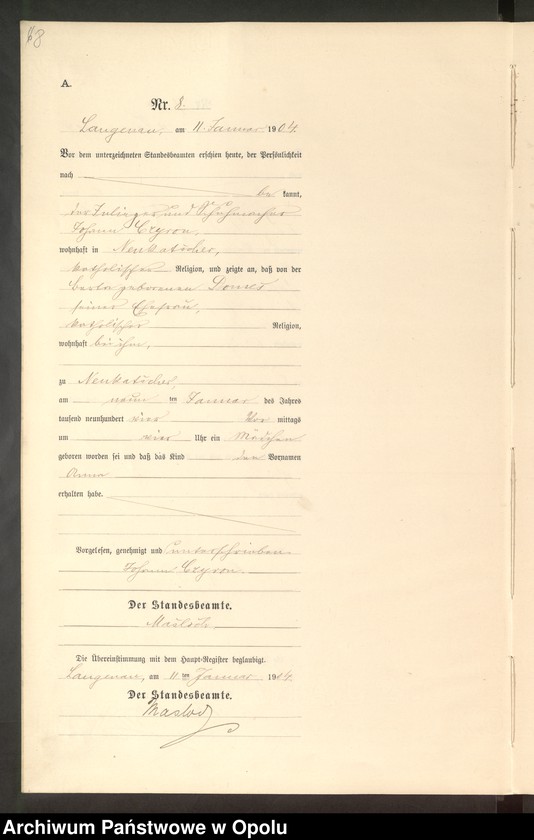 8
A.
Nr. 8.
Langenau, am 11. Januar 1904.
Vor dem unterzeichneten Standesbeamten erschien heute, der Persönlichkeit
nach
be kannt,
der und Schuhmacher
Johann Czyron,
wohnhaft in Neukatscher,
katholischer Religion, und zeigte an, daß von der
geborenen
seiner Ehefrau,
katholischer Religion,
wohnhaft bei ihm,
zu Neukatscher,
am neun ten Januar des Jahres
tausend neunhundert vier Vor mittags
um vier Uhr ein Mädchen
geboren worden sei und daß das Kind den Vornamen
Anna
erhalten habe.
Vorgelesen, genehmigt und unterschrieben
Johann Czyron.
Der Standesbeamte.
Die Übereinstimmung mit dem Haupt-Register beglaubigt.
Langenau, am 11 ten Januar 1904.
Der Standesbeamte.
Archiwum Państwowe w Opolu